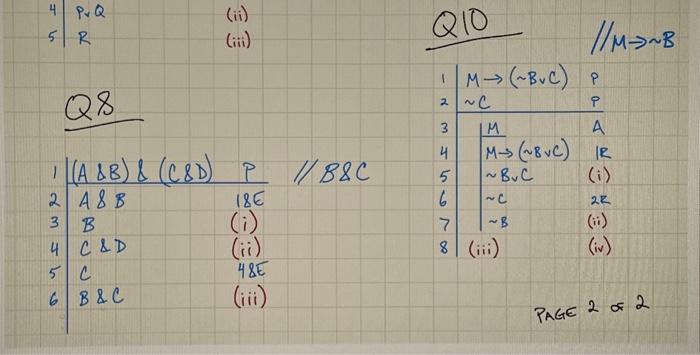 4 P∨Q (ii)
5 R (iii)
Q8
1 (A & B) & (C & D) P // B & C
2 A & B 1&E
3 B (i)
4 C & D (ii)
5 C 4&E
6 B & C (iii)
Q10
// M → ~B
1 M → (~B ∨ C) P
2 ~C P
3 M A
4 M → (~B ∨ C) 1R
5 ~B ∨ C (i)
6 ~C 2R
7 ~B (ii)
8 (iii) (iv)
PAGE 2 OF 2